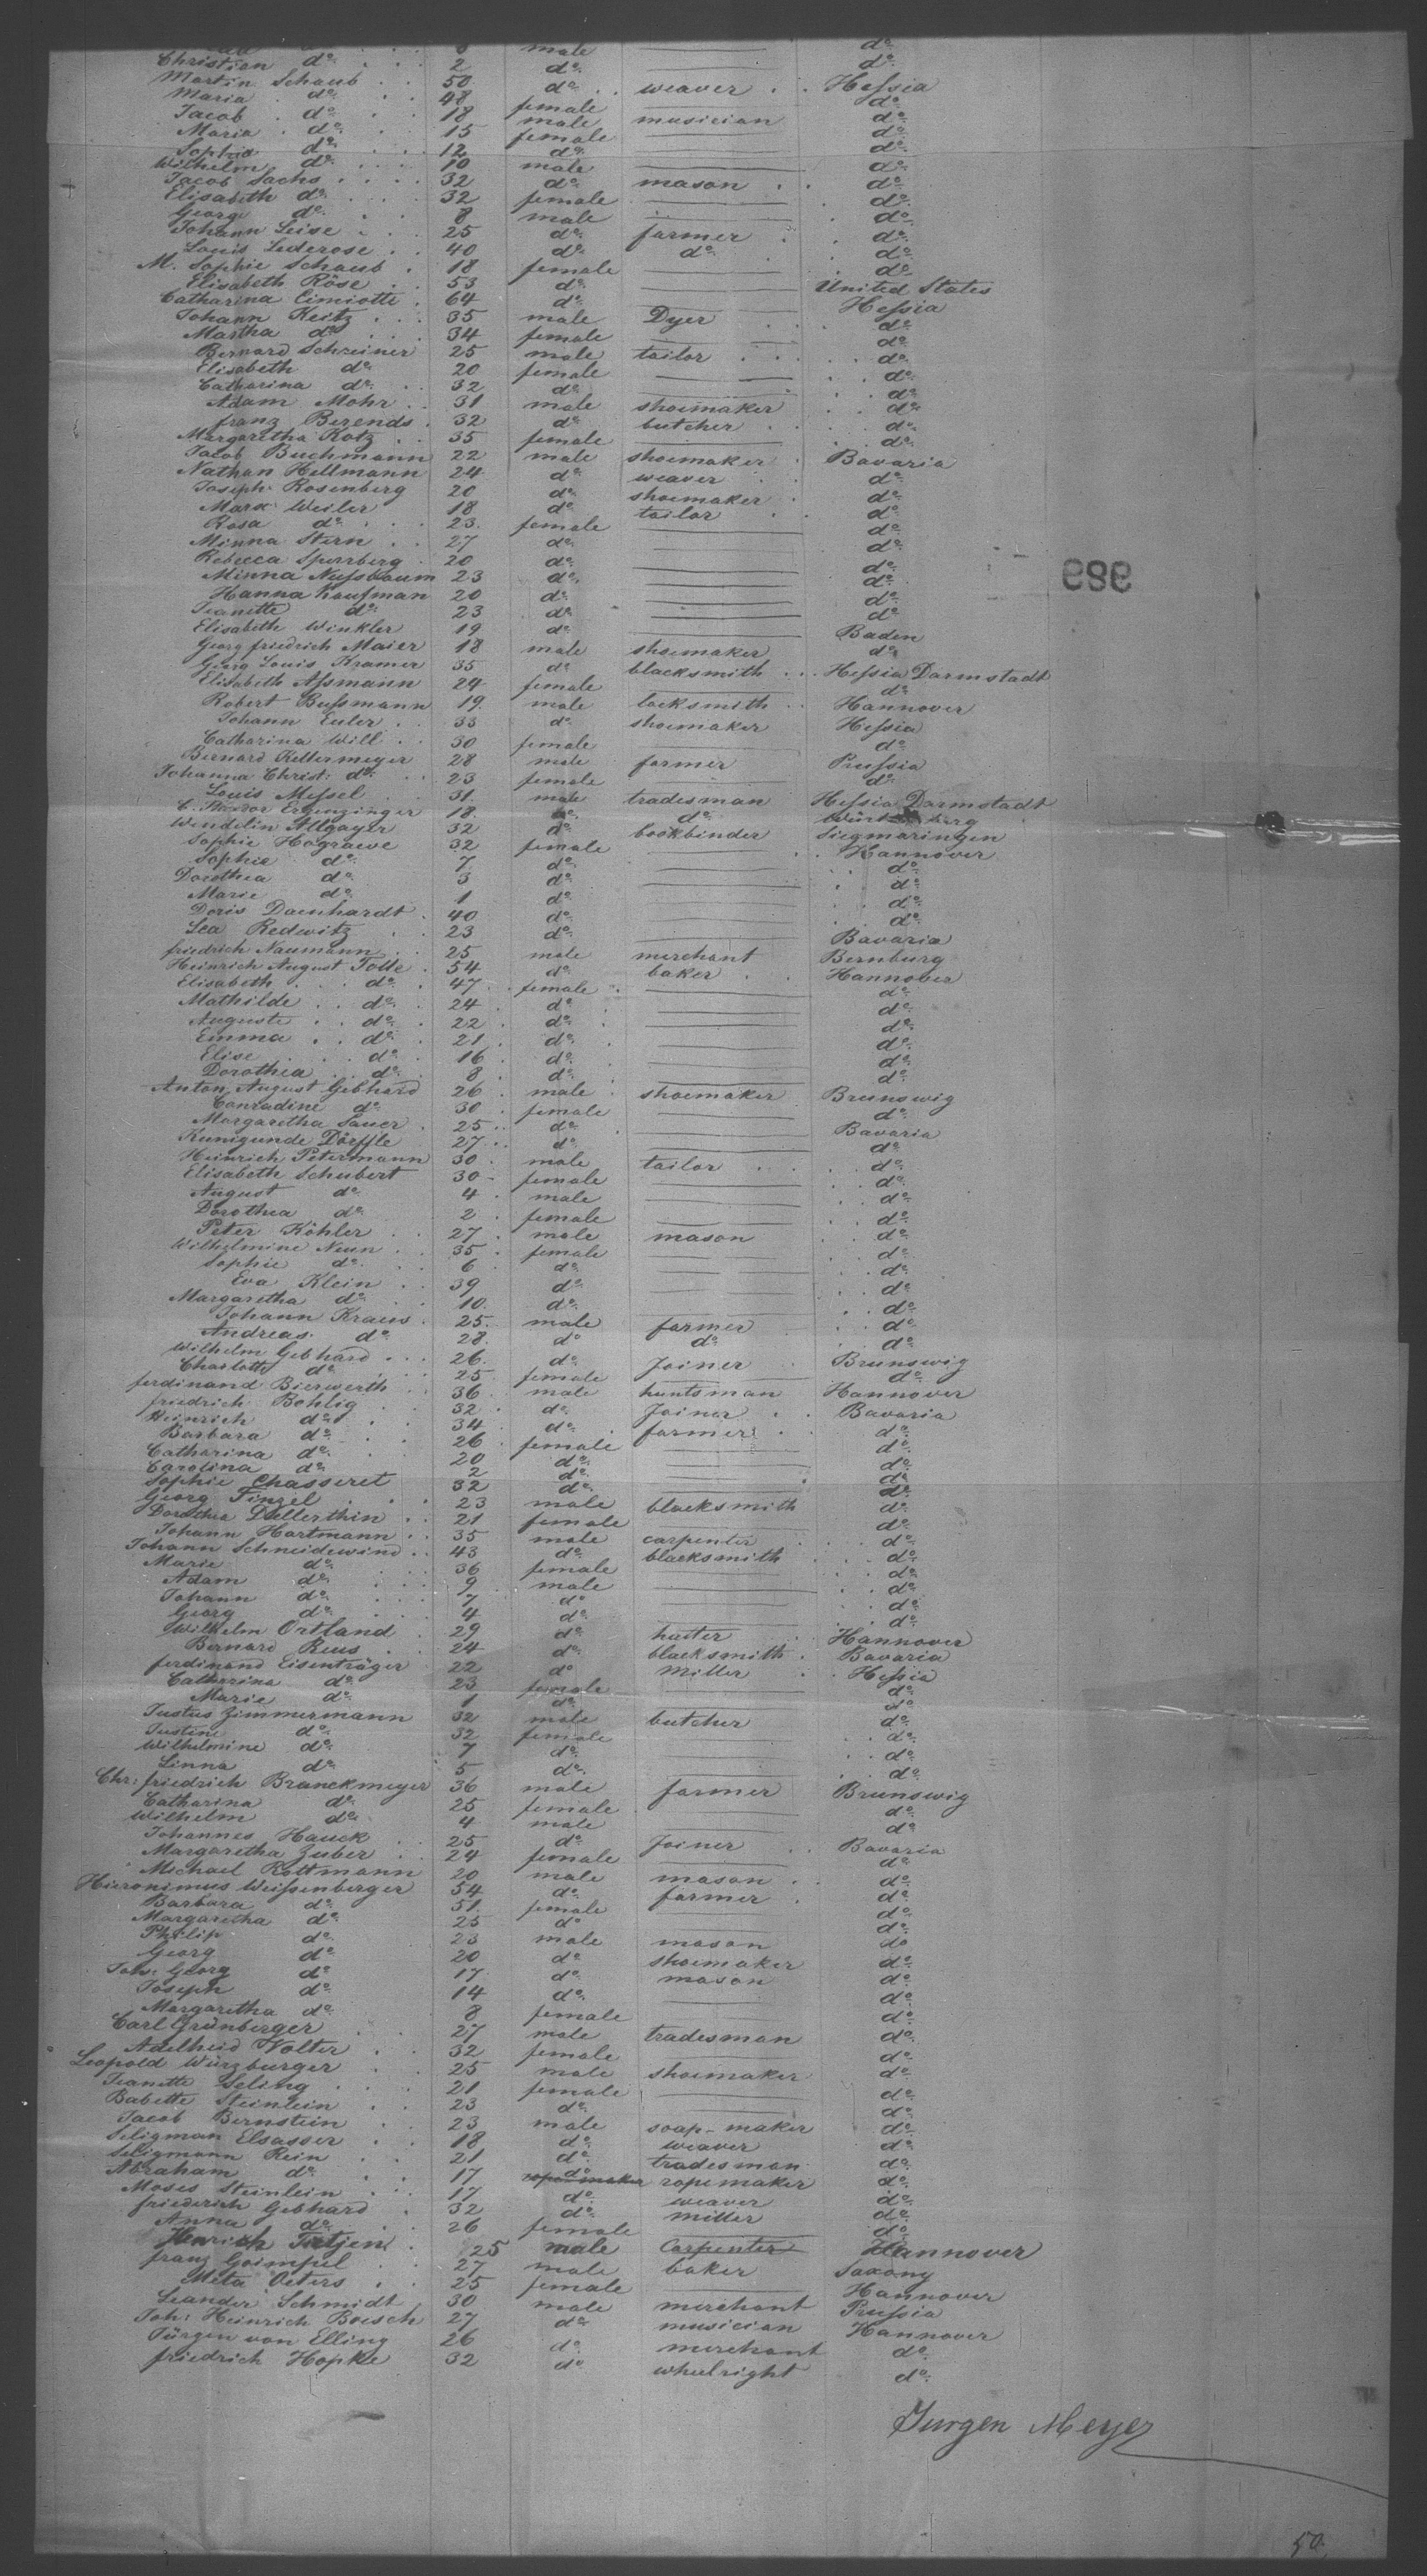 male dº
Christian dº 2 dº dº
Martin Schaub 50 dº weaver Hessia
Maria dº 48 female dº
Jacob dº 18 male musician dº
Maria dº 15 female dº
Sophia dº 12 dº dº
Wilhelm dº 10 male dº
Jacob Sachs 32 dº mason dº
Elisabeth dº 32 female dº
Georg dº 8 male dº
Johann Leise 25 dº farmer dº
Louis Lederose 40 dº dº dº
M. Sophie Schaub 18 female dº
Elisabeth Röse 53 dº United States
Catharina Eimiotte 64 dº Hessia
Johann Keitz 35 male Dyer dº
Martha dº 34 female dº
Bernard Schreiner 25 male tailor dº
Elisabeth dº 20 female dº
Catharina dº 32 dº dº
Adam Mohr 31 male shoemaker dº
franz Berends 32 dº butcher dº
Margaretha Kotz 35 female dº
Jacob Buchmann 22 male shoemaker Bavaria
Nathan Hellmann 24 dº weaver dº
Joseph Rosenberg 20 dº shoemaker dº
Mark Weiler 18 dº tailor dº
Rosa dº 23 female dº
Minna Stern 27 dº dº
Rebecca Sperrberg 20 dº dº
Minna Nussbaum 23 dº dº
Hanna Kaufman 20 dº dº
Jeanette dº 23 dº dº
Elisabeth Winkler 19 dº Baden
Georg friedrich Maier 18 male shoemaker dº
Georg Louis Kramer 35 dº blacksmith Hessia Darmstadt
Elisabeth Assmann 24 female dº
Robert Bussmann 19 male locksmith Hannover
Johann Euler 33 dº shoemaker Hessia
Catharina Will 30 female dº
Bernard Kellermeyer 28 male farmer Prussia
Johanna Christ: dº 23 female dº
Louis Messel 31 male tradesman Hessia Darmstadt
C. Erzenzinger 18 dº dº
Wendelin Allgayer 32 dº bookbinder Siegmaringen
Sophie Hograewe 32 female Hannover
Sophie dº 7 dº dº
Dorothea dº 3 dº dº
Marie dº 1 dº dº
Doris Daenhardt 40 dº dº
Lea Redwitz 23 dº Bavaria
friedrich Naumann 25 male merchant Bernburg
Heinrich August Tolle 54 dº baker Hannover
Elisabeth dº 47 female dº
Mathilde dº 24 dº dº
Auguste dº 22 dº dº
Emma dº 21 dº dº
Elise dº 16 dº dº
Dorothea dº 8 dº dº
Anton August Gebhard 26 male shoemaker Brunswig
Conradine dº 30 female dº
Margaretha Sauer 25 dº Bavaria
Kunigunde Dörffle 27 dº dº
Heinrich Petermann 30 male tailor dº
Elisabeth Schubert 30 female dº
August dº 4 male dº
Dorothea dº 2 female dº
Peter Köhler 27 male mason dº
Wilhelmine Neun 35 female dº
Sophie dº 6 dº dº
Eva Klein 39 dº dº
Margaretha dº 10 dº dº
Johann Kraus 25 male farmer dº
Andreas dº 28 dº dº dº
Wilhelm Gebhard 26 dº Joiner Brunswig
Charlotte dº 25 female dº
ferdinand Bierwerth 36 male huntsman Hannover
friedrich Bohlig 32 dº Joiner Bavaria
Heinrich dº 34 dº farmer dº
Barbara dº 26 female dº
Catharina dº 20 dº dº
Carolina dº 2 dº dº
Sophie Chasseret 32 dº dº
Georg Finzel 23 male blacksmith dº
Dorothea Dellerthin 21 female dº
Johann Hartmann 35 male carpenter dº
Johann Schneidewind 43 dº blacksmith dº
Marie dº 36 female dº
Adam dº 9 male dº
Johann dº 7 dº dº
Georg dº 4 dº dº
Wilhelm Ortland 29 dº hatter Hannover
Bernard Reus 24 dº blacksmith Bavaria
ferdinand Eisenträger 22 dº Miller Hessia
Catharina dº 23 female dº
Marie dº 1 dº dº
Justus Zimmermann 32 male butcher dº
Justine dº 32 female dº
Wilhelmine dº 7 dº dº
Linna dº 5 dº dº
Chr: friedrich Branckmeyer 36 male farmer Brunswig
Catharina dº 25 female dº
Wilhelm dº 4 male dº
Johannes Hauck 25 dº Joiner Bavaria
Margaretha Zuber 24 female dº
Michael Rottmann 20 male mason dº
Hieronimus Weissenberger 54 dº farmer dº
Barbara dº 51 female dº
Margaretha dº 25 dº dº
Philip dº 23 male mason do
Georg dº 20 dº shoemaker dº
Joh: Georg dº 17 dº mason dº
Joseph dº 14 dº dº
Margaretha dº 8 female dº
Carl Grünberger 27 male tradesman dº
Adelheid Wolter 32 female dº
Leopold Würzburger 25 male shoemaker dº
Jeanette Seling 21 female dº
Babette Steinlein 23 dº dº
Jacob Bernstein 23 male soap-maker dº
Seligman Elsasser 18 dº weaver dº
Seligmann Rein 21 dº tradesman dº
Abraham dº 17 dº ropemaker dº
Moses Steinlein 17 dº weaver dº
friederich Gebhard 32 dº miller dº
Anna dº 26 female dº
Henrich Tietjen 25 male Carpenter Hannover
franz Goimpel 27 male baker Saxony
Meta Oeters 25 female Hannover
Leander Schmidt 30 male merchant Prussia
Joh: Heinrich Boesch 27 dº musician Hannover
Jürgen von Elling 26 dº merchant dº
friedrich Hopke 32 dº wheelright dº
989
Jurgen Meyer
50